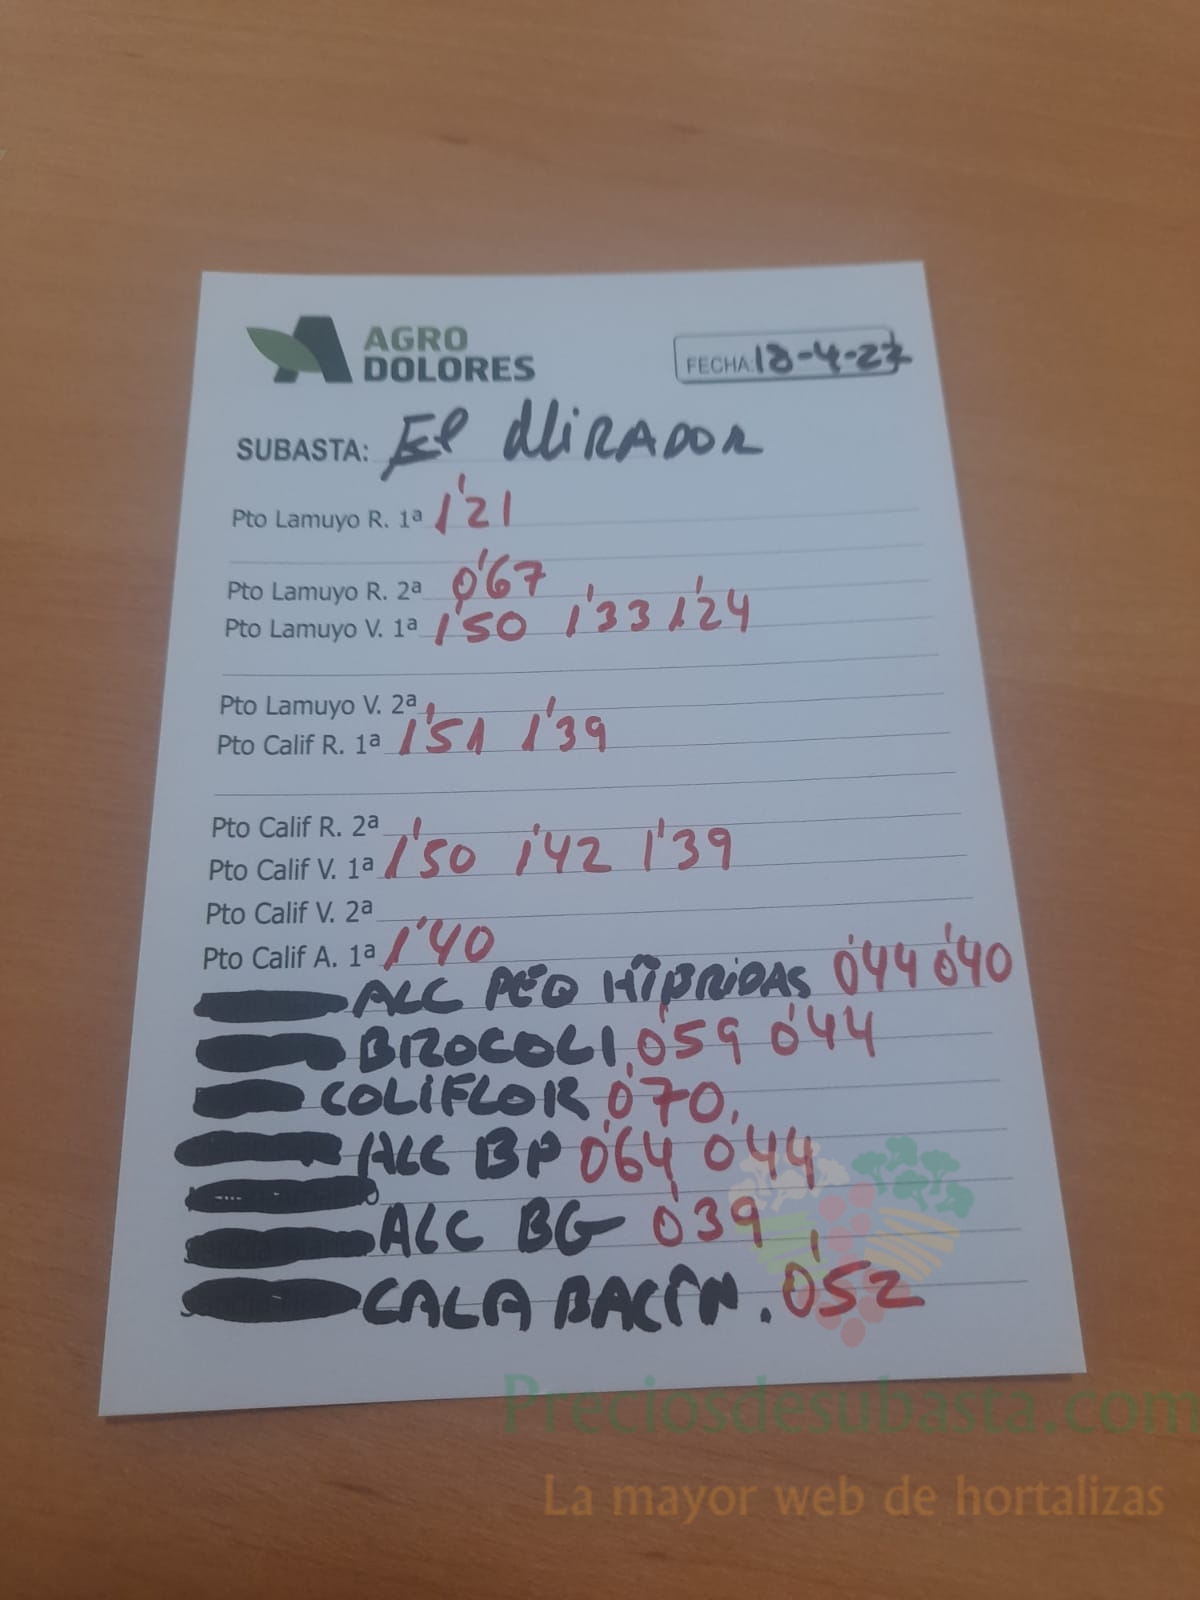 AGRO
DOLORES
FECHA: 18-4-23
SUBASTA: El MIRADOR
Pto Lamuyo R. 1ª 1'21
Pto Lamuyo R. 2ª 0'67
Pto Lamuyo V. 1ª 1'50 1'33 1'24
Pto Lamuyo V. 2ª
Pto Calif R. 1ª 1'51 1'39
Pto Calif R. 2ª
Pto Calif V. 1ª 1'50 1'42 1'39
Pto Calif V. 2ª
Pto Calif A. 1ª 1'40
ALC PEQ HÍBRIDAS 0'44 0'40
BROCOLI 0'59 0'44
COLIFLOR 0'70,
ALC BP 0'64 0'44
ALC BG 0'39
CALABACÍN. 0'52
Preciosdesubasta.com
La mayor web de hortalizas